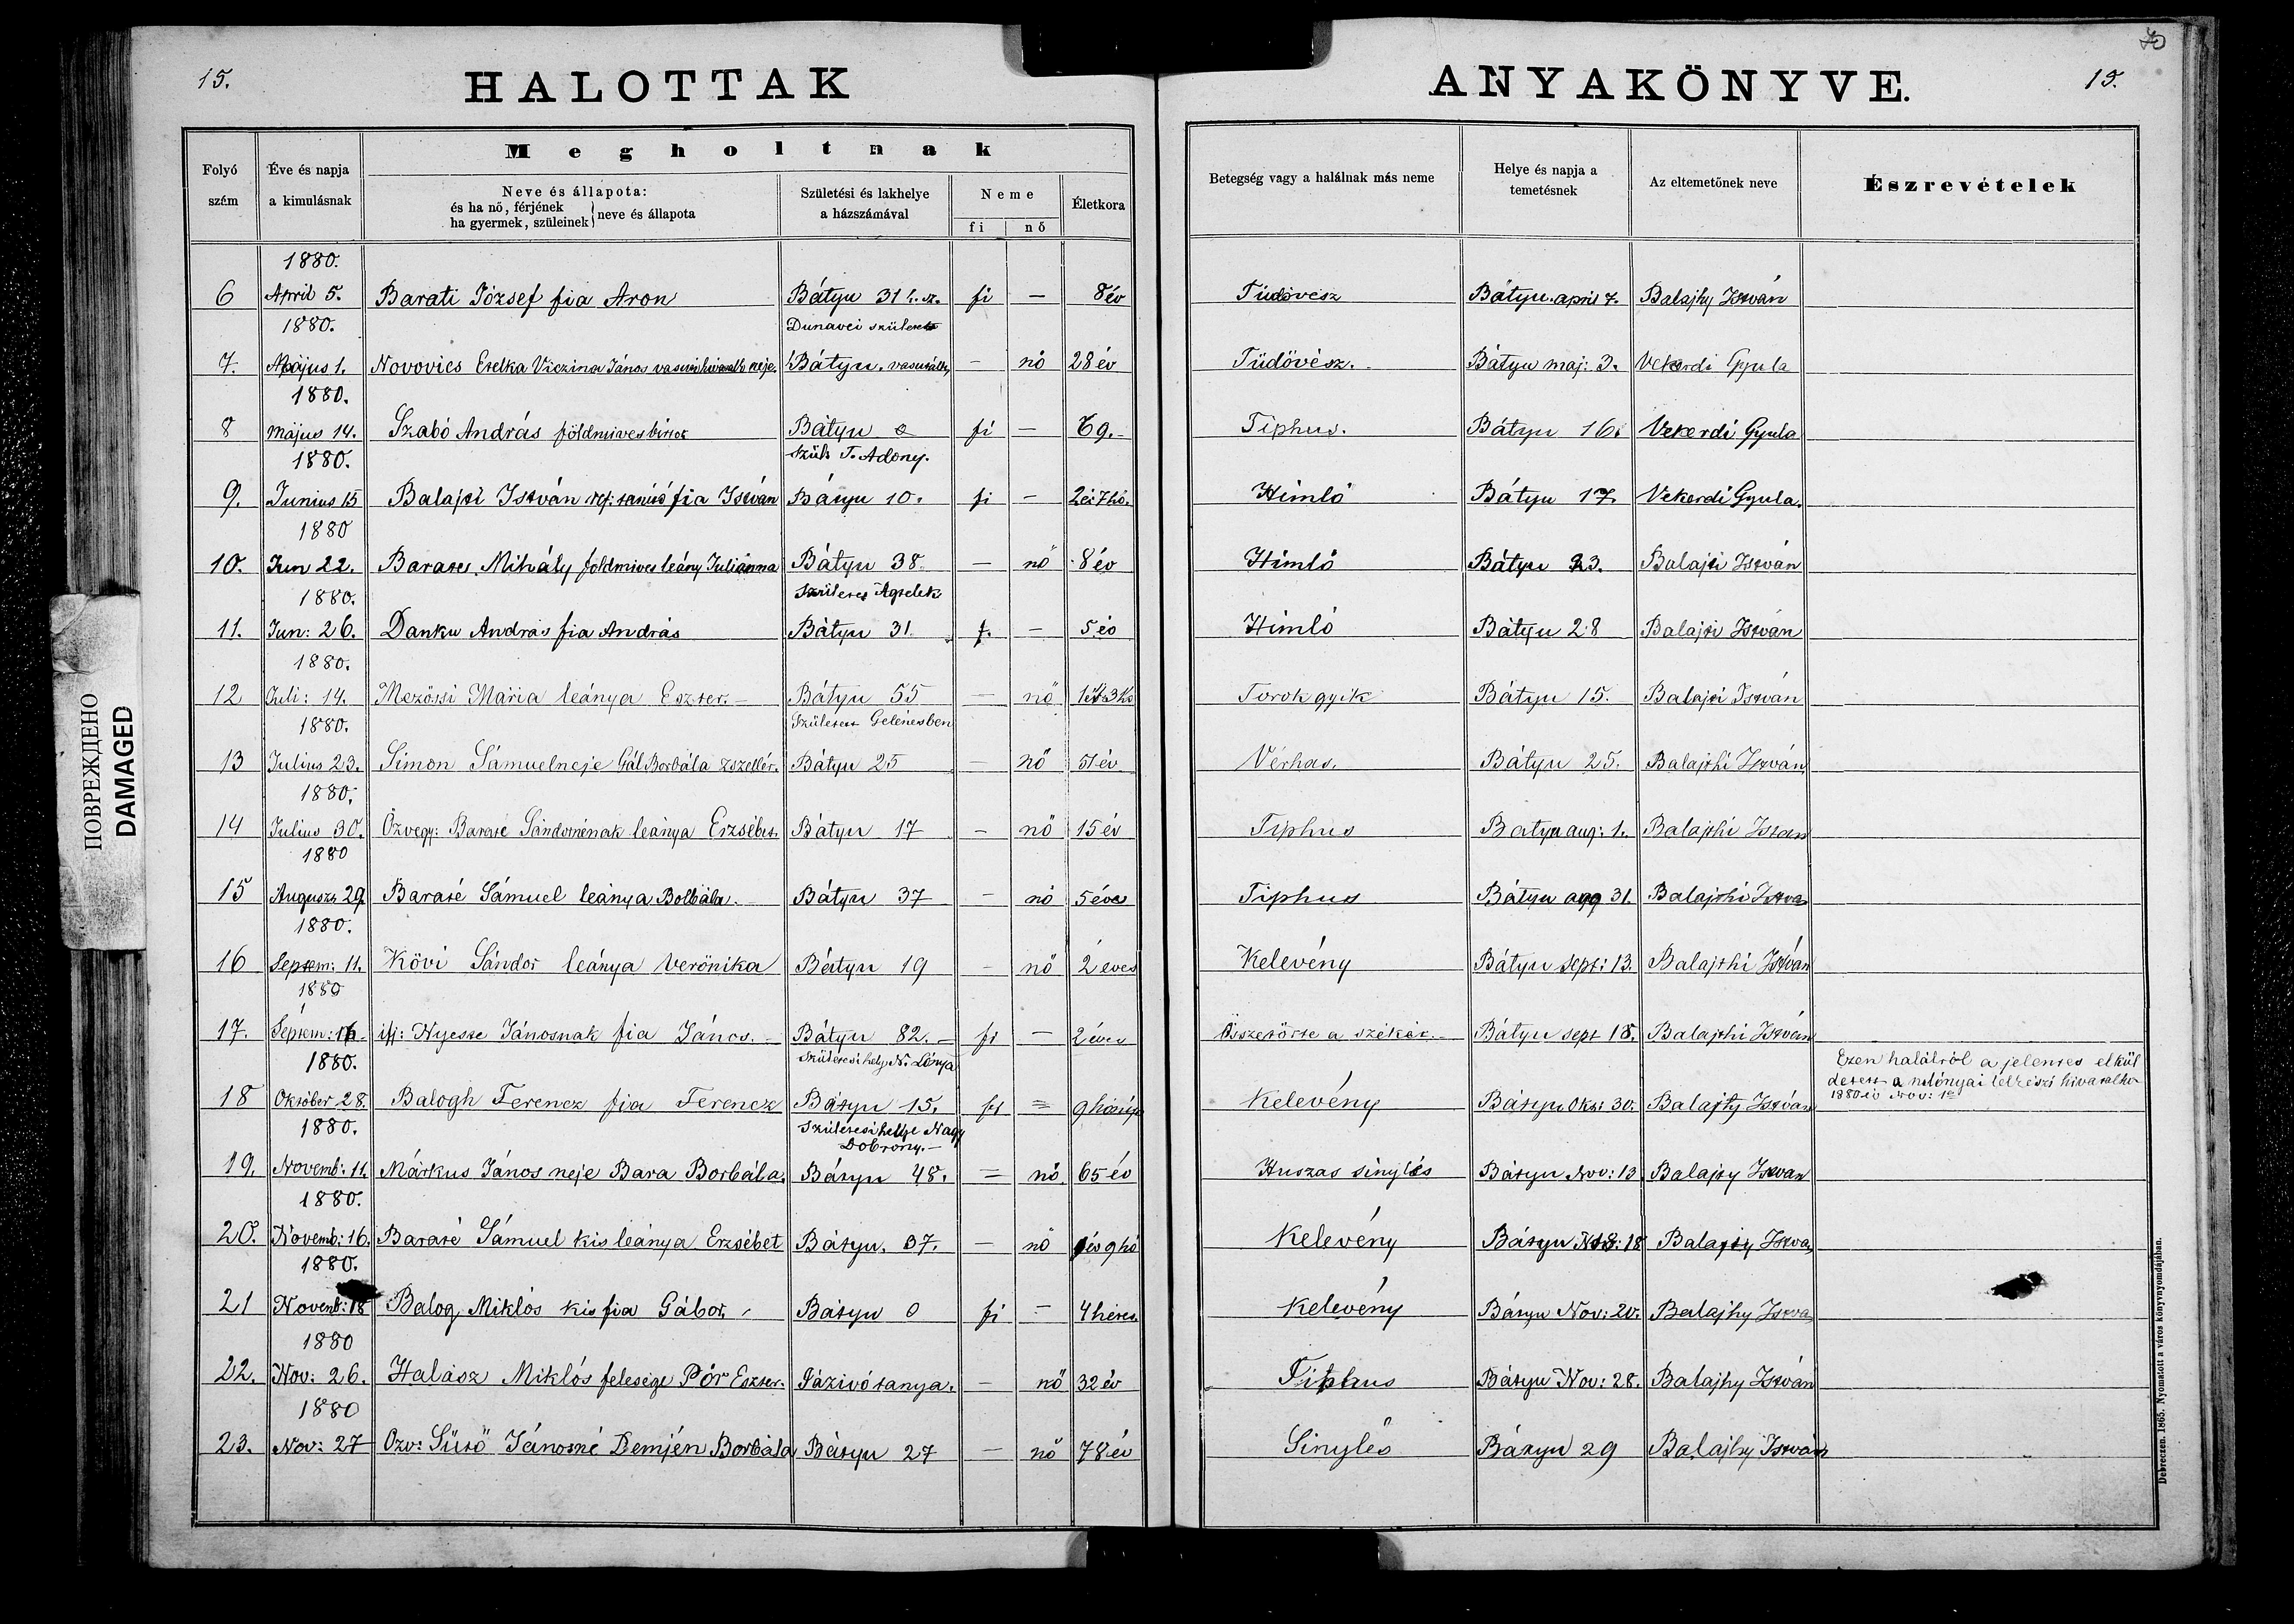 15.
HALOTTAK
Folyó szám
Éve és napja a kimulásnak
Megholtnak
Neve és állapota:
és ha nő, férjének
ha gyermek, szüleinek } neve és állapota
Születési és lakhelye a házszámával
Neme
fi nő
Életkora
ANYAKÖNYVE.
15.
Betegség vagy a halálnak más neme
Helye és napja a temetésnek
Az eltemetőnek neve
Észrevételek
1880.
6 April 5. Barati József fia Aron Bátyu 31 h. sz. fi — 8 év Tüdővész Bátyu. april 7. Balajhy István
1880. Dunavei született
7. Május 1. Novovics Etelka Viczina János neje. Bátyu. — nő 28 év Tüdővész. Bátyu maj: 3. Vekerdi Gyula
1880.
8 Május 14. Szabó András földmives birtok Bátyu fi — 69. Tiphus. Bátyu 16. Vekerdi Gyula
1880. Szül: T. Adony.
9. Junius 15 Balajti István ref: tanító fia István Bátyu 10. fi — 2 év 7 hó. Himlő Bátyu 17. Vekerdi Gyula.
1880
10. Jun 22. Barate. Mihály földmives leány Juliánna Bátyu 38. — nő 8 év Himlő Bátyu 23. Balajti István
1880. Születet Agtelek
11. Jun: 26. Danku András fia András Bátyu 31. f. — 5 év Himlő Bátyu 28 Balajti István
1880.
12 Juli: 14. Mezőssi Mária leánya Eszter. — Bátyu 55 — nő Torok gyik Bátyu 15. Balajti István
1880. Született Gelénesben
13 Julius 23. Simon Sámuel neje Gál Borbála zszellér. Bátyu 25 — nő 51 év Vérhas. Bátyu 25. Balajthi István
1880.
14 Julius 30. Özvegy: Barate Sándornénak leánya Erzsébet. Bátyu 17 — nő 15 év Tiphus Batyu aug: 1. Balajthi Istvan
1880
15 Auguszt 29. Baraté Sámuel leánya Bolbála. Bátyu 37 — nő 5 éves Tiphus Bátyu aug 31. Balajthi Istva
1880.
16 Septem: 11. Kövi Sándor leánya Verönika Bátyu 19 — nő 2 éves Kelevény Bátyu sept: 13. Balajthi István
1880
17. Septem: 16 ifj: Nyeste Jánosnak fia János. — Bátyu 82. — fi — 2 éves Összetörte a szekér. — Bátyu sept 18. Balajthi István
1880. Születési hely N. Lónya
Ezen halálról a jelentes elkül
detett a nlónyai lelkészi hivatalho
1880 év Nov: 1én
18 Október 28. Balogh Ferencz fia Ferencz Bátyu 15. fi = 9 hónap Kelevény Bátyu Okt: 30. Balajty István
1880. Születesi hellye Nagy
Dobrony. —
19. Novemb: 11. Márkus János neje Bara Borbála. Bátyu 48. — nő. 65 év Huszas sinylés Bátyu Nov: 13 Balajty Istvan
1880.
20. Novemb: 16. Baraté Sámuel kis leánya Erzsébet Bátyu. 37. — nő 1 év 9 hó Kelevény Bátyu Nov: 18 Balajty Istva
1880.
21 Novemb: 18 Balog Miklós kis fia Gábor. Bátyu 0 fi — 4 hetes. Kelevény Bátyu Nov: 20. Balajhy Istva
1880
22. Nov: 26. Halász Miklós felesége Pór Eszter. Tázivó tanya. — nő 32 év Tiphus Bátyu Nov: 28. Balajhy István
1880
23. Nov: 27 Özv: Sütő Jánosné Demjén Borbála Bátyu 27 — nő 78 év Sinylés Bátyu 29 Balajhy István
Debreczen. 1865. Nyomatott a város könyvnyomdájában.
ПОВРЕЖДЕНО
DAMAGED